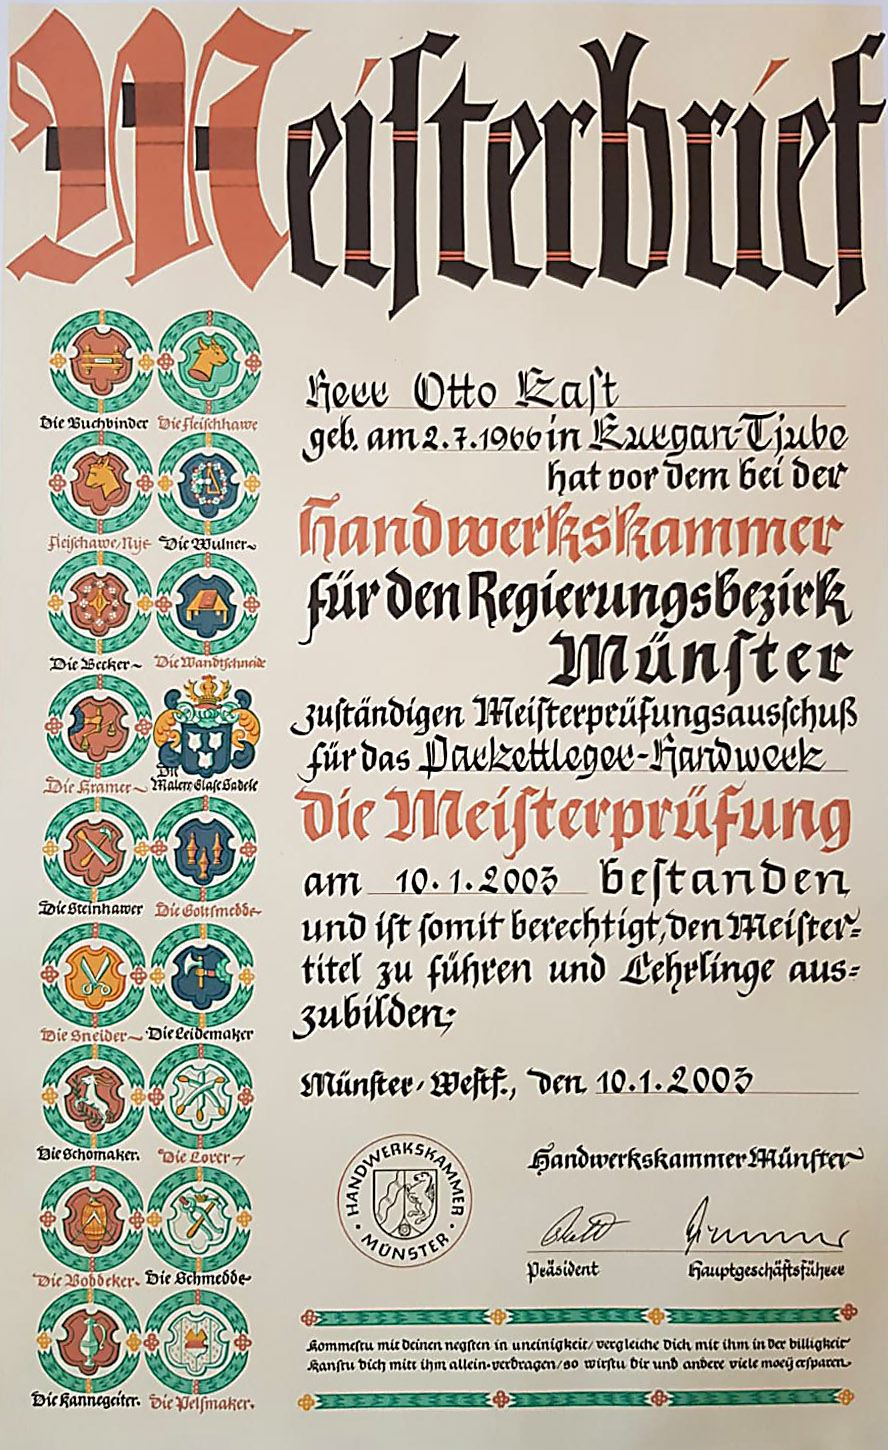 Meisterbrief
Die Buchbinder Die Fleischhawe
Fleischawe/Nye Die Wulner
Die Becker Die Wandtschneide
Die Kramer Die Maler, Glase, Sadele
Die Steinhawer Die Goltsmedde
Die Sneider Die Leidemaker
Die Schomaker. Die Lorer
Die Boddeker. Die Schmedde
Die Kannegeiter. Die Pelsmaker.
Herr Otto Kast
geb. am 2.7.1966 in Kurgan-Tjube
hat vor dem bei der
Handwerkskammer
für den Regierungsbezirk
Münster
zuständigen Meisterprüfungsausschuß
für das Parkettleger-Handwerk
die Meisterprüfung
am 10.1.2003 bestanden
und ist somit berechtigt, den Meister=
titel zu führen und Lehrlinge aus=
zubilden;
Münster, Westf., den 10.1.2003
HANDWERKSKAMMER
MÜNSTER
Handwerkskammer Münster
Präsident Hauptgeschäftsführer
Kommestu mit deinen negsten in uneinigkeit/ vergleiche dich mit ihm in der billigkeit
Kanstu dich mitt ihm allein verdragen/ so wirstu dir und andere viele moeÿ ersparen